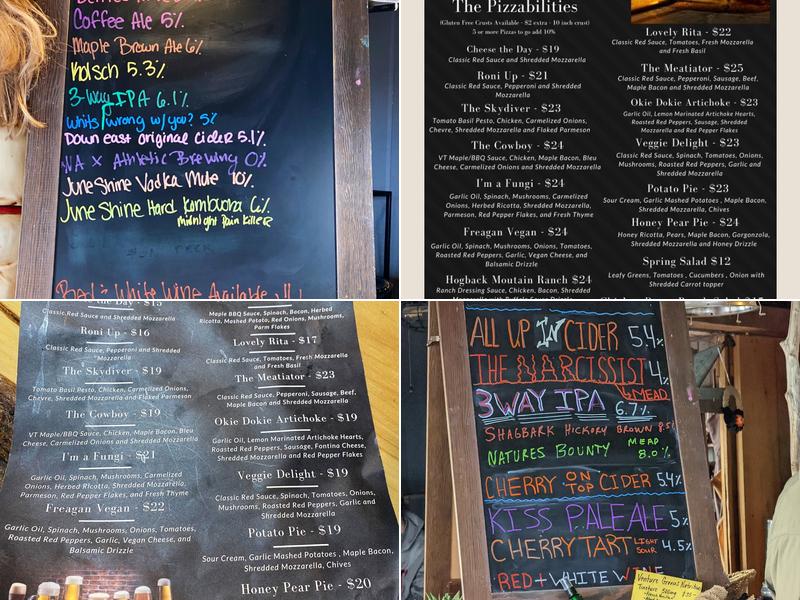 Coffee Ale 5%
Maple Brown Ale 6%
Kolsch 5.3%
3-Way IPA 6.1%
Whits/wrong w/you? 5%
Down east original cider 5.1%
NA X Athletic Brewing 0%
JuneShine Vodka Mule 10%
JuneShine Hard Kombucha 6%
midnight Pain Killer
White Wine Available !!!
The Pizzabilities
(Gluten Free Crusts Available - $2 extra - 10 inch crust)
5 or more Pizzas to go add 10%
Cheese the Day - $19
Classic Red Sauce and Shredded Mozzarella
Roni Up - $21
Classic Red Sauce, Pepperoni and Shredded
Mozzarella
The Skydiver - $23
Tomato Basil Pesto, Chicken, Carmelized Onions,
Chevre, Shredded Mozzarella and Flaked Parmeson
The Cowboy - $24
VT Maple/BBQ Sauce, Chicken, Maple Bacon, Bleu
Cheese, Carmelized Onions and Shredded Mozzarella
I'm a Fungi - $24
Garlic Oil, Spinach, Mushrooms, Carmelized
Onions, Herbed Ricotta, Shredded Mozzarella,
Parmeson, Red Pepper Flakes, and Fresh Thyme
Freagan Vegan - $24
Garlic Oil, Spinach, Mushrooms, Onions, Tomatoes,
Roasted Red Peppers, Garlic, Vegan Cheese, and
Balsamic Drizzle
Hogback Moutain Ranch $24
Ranch Dressing Sauce, Chicken, Bacon, Shredded
Lovely Rita - $22
Classic Red Sauce, Tomatoes, Fresh Mozzarella
and Fresh Basil
The Meatiator - $25
Classic Red Sauce, Pepperoni, Sausage, Beef,
Maple Bacon and Shredded Mozzarella
Okie Dokie Artichoke - $23
Garlic Oil, Lemon Marinated Artichoke Hearts,
Roasted Red Peppers, Sausage, Shredded
Mozzarella and Red Pepper Flakes
Veggie Delight - $23
Classic Red Sauce, Spinach, Tomatoes, Onions,
Mushrooms, Roasted Red Peppers, Garlic and
Shredded Mozzarella
Potato Pie - $23
Sour Cream, Garlic Mashed Potatoes , Maple Bacon,
Shredded Mozzarella, Chives
Honey Pear Pie - $24
Honey Ricotta, Pears, Maple Bacon, Gorgonzola,
Shredded Mozzarella and Honey Drizzle
Spring Salad $12
Leafy Greens, Tomatoes , Cucumbers , Onion with
Shredded Carrot topper
the Day - $15
Classic Red Sauce and Shredded Mozzarella
Roni Up - $16
Classic Red Sauce, Pepperoni and Shredded
Mozzarella
The Skydiver - $19
Tomato Basil Pesto, Chicken, Carmelized Onions,
Chevre, Shredded Mozzarella and Flaked Parmesan
The Cowboy - $19
VT Maple/BBQ Sauce, Chicken, Maple Bacon, Bleu
Cheese, Carmelized Onions and Shredded Mozzarella
I'm a Fungi - $21
Garlic Oil, Spinach, Mushrooms, Carmelized
Onions, Herbed Ricotta, Shredded Mozzarella,
Parmeson, Red Pepper Flakes, and Fresh Thyme
Freagan Vegan - $22
Garlic Oil, Spinach, Mushrooms, Onions, Tomatoes,
Roasted Red Peppers, Garlic, Vegan Cheese and
Balsamic Drizzle
Maple BBQ Sauce, Spinach, Bacon, Herbed
Ricotta, Mashed Potato, Red Onions, Mushrooms,
Parm Flakes
Lovely Rita - $17
Classic Red Sauce, Tomatoes, Fresh Mozzarella
and Fresh Basil
The Meatiator - $23
Classic Red Sauce, Pepperoni, Sausage, Beef,
Maple Bacon and Shredded Mozzarella
Okie Dokie Artichoke - $19
Garlic Oil, Lemon Marinated Artichoke Hearts,
Roasted Red Peppers, Sausage, Fontina Cheese,
Shredded Mozzarella and Red Pepper Flakes
Veggie Delight - $19
Classic Red Sauce, Spinach, Tomatoes, Onions,
Mushrooms, Roasted Red Peppers, Garlic and
Shredded Mozzarella
Potato Pie - $19
Sour Cream, Garlic Mashed Potatoes , Maple Bacon,
Shredded Mozzarella, Chives
Honey Pear Pie - $20
ALL UP IN CIDER 5.4%
THE NARCISSIST 4%
MEAD
3WAY IPA 6.7%
SHAGBARK HICKORY BROWN 8.5%
NATURES BOUNTY MEAD 8.0%
CHERRY ON TOP CIDER 5.4%
KISS PALE ALE 5%
CHERRY TART LIGHT SOUR 4.5%
RED + WHITE WINE
Venture Greens Nutrition